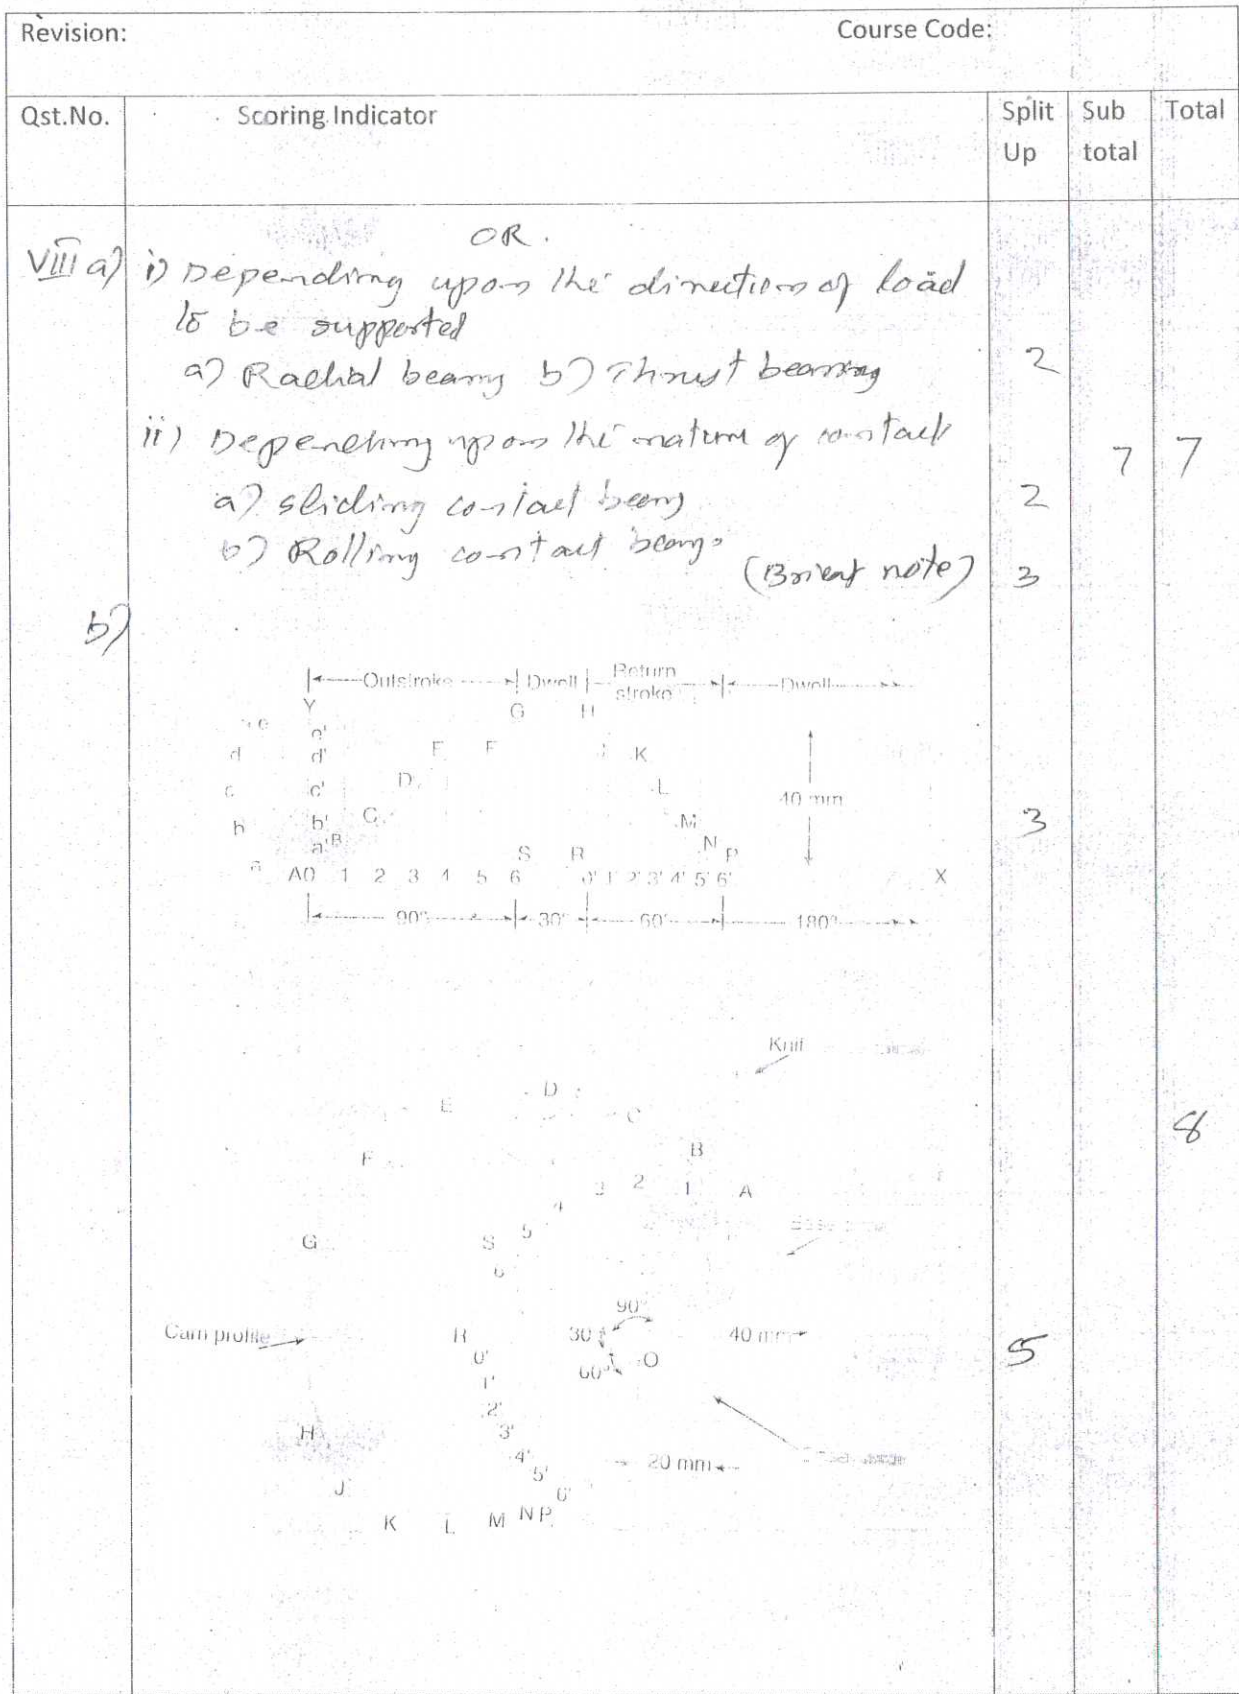 Revision: Course Code:
Qst.No. Scoring Indicator Split Up Sub total Total
OR.
VIII a) i) Depending upon the direction of load
to be supported
a) Radial bearing b) Thrust bearing 2
ii) Depending upon the nature of contact 7 7
a) sliding contact bearing 2
b) Rolling contact bearings
(Brief note) 3
b)
Outstroke Dwell Return stroke Dwell
Y G H
e e'
d d' E F J K
c c' D L 40 mm
b b' C M 3
a a' B S R N P
A0 1 2 3 4 5 6 0' 1' 2' 3' 4' 5' 6' X
90° 30° 60° 180°
Knif
D
E C 8
F B
3 2 1 A
4
G S 5
6
90°
Cam profile R 30° 40 mm
0' 60° O 5
1'
2'
H 3'
4' 20 mm
J 5'
6'
K L M N P